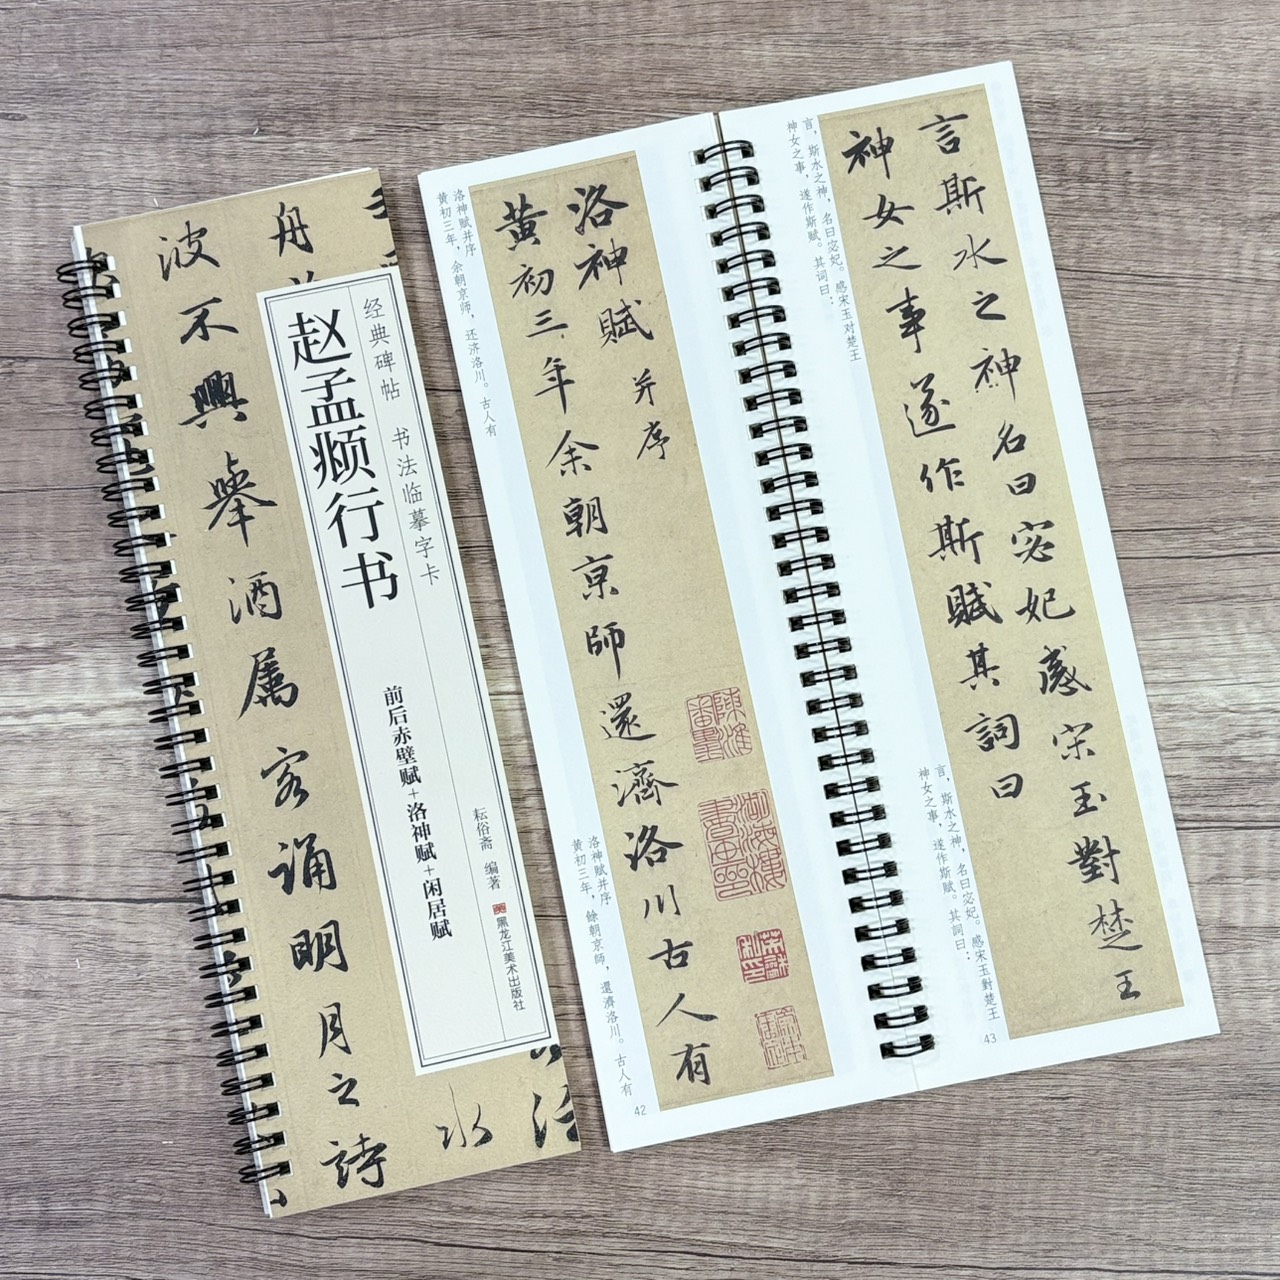 波不興舉酒属客诵明月之詩
舟
水
经典碑帖 书法临摹字卡
赵孟頫行书
前后赤壁赋+洛神赋+闲居赋
耘俗斋 编著
黑龙江美术出版社
洛神赋并序
黄初三年，余朝京师，还济洛川。古人有
洛神賦并序
黄初三年余朝京師還濟洛川古人有
洛神赋并序
黄初三年，餘朝京師，還濟洛川。古人有
42
言，斯水之神，名曰宓妃。感宋玉对楚王
神女之事，遂作斯赋。其词曰：
言斯水之神名曰宓妃感宋玉對楚王
神女之事遂作斯賦其詞曰
言，斯水之神，名曰宓妃。感宋玉對楚王
神女之事，遂作斯賦。其詞曰：
43